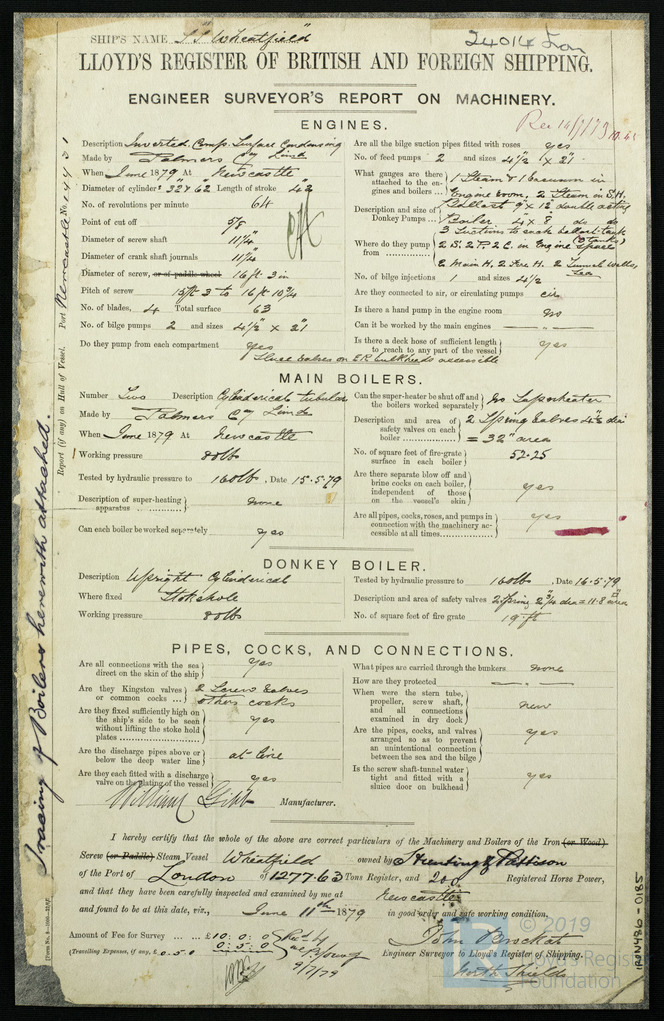 SHIP'S NAME S.S. "Wheatfield"
24014 Iron
LLOYD'S REGISTER OF BRITISH AND FOREIGN SHIPPING.
ENGINEER SURVEYOR'S REPORT ON MACHINERY.
Rec 14/7/79
ENGINES.
Description Inverted Comp. Surface Condensing
Made by Palmers Coy Limd
When June 1879 At Newcastle
Diameter of cylinders 32 & 62 Length of stroke 42
No. of revolutions per minute 64
Point of cut off 5/8
Diameter of screw shaft 11 1/4
Diameter of crank shaft journals 11 1/4
Diameter of screw, or of paddle wheel 16 ft 3 in
Pitch of screw 15 ft 3 to 16 ft 10 3/4
No. of blades, 4 Total surface 63
No. of bilge pumps 2 and sizes 4 1/2" x 21"
Do they pump from each compartment yes
Sluce valves on E.R. bulkheads accessible
Are all the bilge suction pipes fitted with roses yes
No. of feed pumps 2 and sizes 4 1/2 x 21"
What gauges are there attached to the engines and boilers 1 Steam & 1 Vacuum in Engine room, 2 Steam in S.H.
Description and size of Donkey Pumps Ballast 9 x 12 double acting
Boiler 4 x 8 do do
3 Suctions to each ballast tank
Where do they pump from 2 S. 2 P. 2 C. in Engine Space
2 Main H, 2 Fore H. 2 Tunnel Wells, Sea
No. of bilge injections 1 and sizes 4 1/2
Are they connected to air, or circulating pumps cir.
Is there a hand pump in the engine room no
Can it be worked by the main engines — . —
Is there a deck hose of sufficient length to reach to any part of the vessel yes
MAIN BOILERS.
Number Two Description Cylinderical tubular
Made by Palmers Coy Limd
When June 1879 At Newcastle
Working pressure 80 lbs
Tested by hydraulic pressure to 160 lbs, Date 15.5.79
Description of super-heating apparatus none
Can each boiler be worked separately yes
Can the super-heater be shut off and the boilers worked separately no Superheater
Description and area of safety valves on each boiler 2 Spring valves 4 1/2 dia = 32" area
No. of square feet of fire-grate surface in each boiler 52.25
Are there separate blow off and brine cocks on each boiler, independent of those on the vessel's skin yes
Are all pipes, cocks, roses, and pumps in connection with the machinery accessible at all times yes
DONKEY BOILER.
Description Upright Cylinderical
Where fixed Stokehole
Working pressure 80 lbs
Tested by hydraulic pressure to 160 lbs. Date 16.5.79
Description and area of safety valves 2 Spring 2 3/4 dia = 11.8 area
No. of square feet of fire grate 19 ft
PIPES, COCKS, AND CONNECTIONS.
Are all connections with the sea direct on the skin of the ship yes
Are they Kingston valves or common cocks 2 Screw valves others cocks
Are they fixed sufficiently high on the ship's side to be seen without lifting the stoke hold plates yes
Are the discharge pipes above or below the deep water line at line
Are they each fitted with a discharge valve on the plating of the vessel yes
What pipes are carried through the bunkers none
How are they protected — . —
When were the stern tube, propeller, screw shaft, and all connections examined in dry dock new
Are the pipes, cocks, and valves arranged so as to prevent an unintentional connection between the sea and the bilge yes
Is the screw shaft-tunnel water tight and fitted with a sluice door on bulkhead yes
William Gibb Manufacturer.
I hereby certify that the whole of the above are correct particulars of the Machinery and Boilers of the Iron (or Wood)
Screw (or Paddle) Steam Vessel Wheatfield owned by Hunting & Pattison
of the Port of London of 1277.63 Tons Register, and 200 Registered Horse Power,
and that they have been carefully inspected and examined by me at Newcastle
and found to be at this date, viz., June 11th 1879 in good order and safe working condition,
Amount of Fee for Survey £10 : 0 : 0
0 : 5 : 0
(Travelling Expenses, if any, £ 0.5.0
9/7/79
John Brockat
Engineer Surveyor to Lloyd's Register of Shipping.
North Shields
Port Newcastle No. 14431
Report (if any) on Hull of Vessel.
Tracing of Boilers herewith attached.
IRON486-0185
© 2019
Lloyd's Register
Foundation